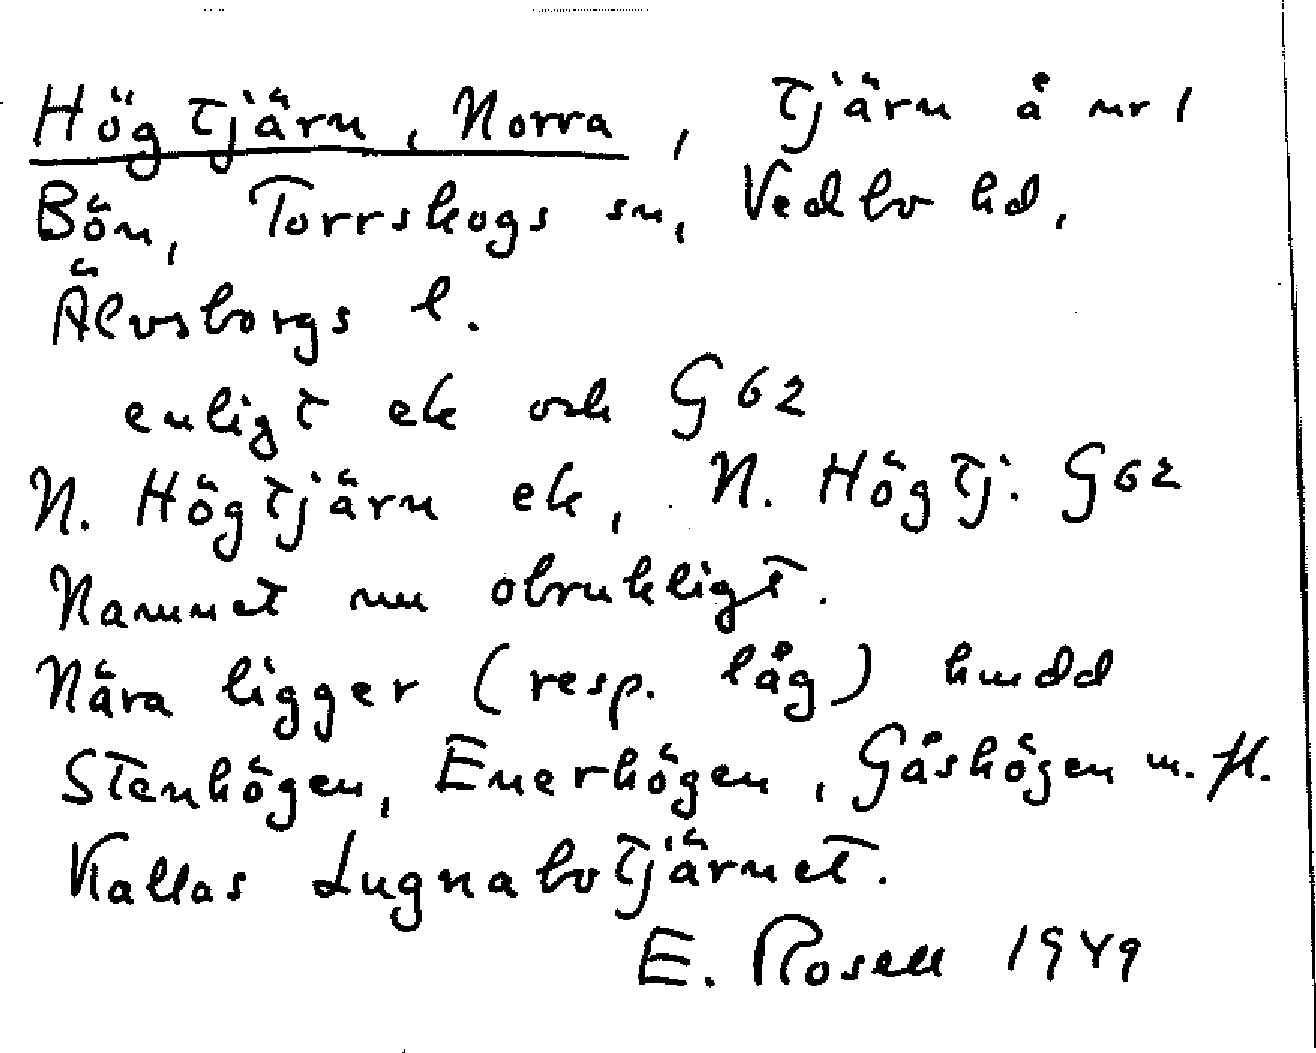 Högtjärn, Norra, tjärn å nr 1
Bön, Torrskogs sn, Vedbo hd,
Älvsborgs l.
enligt ek och G62
N. Högtjärn ek, N. Högtj. G62
Namnet nu obrukligt.
Nära ligger (resp. låg) hmdd
Stenhögen, Enerhögen, Gåshögen m. fl.
Kallas Lugnabotjärnet.
E. Rosell 1949